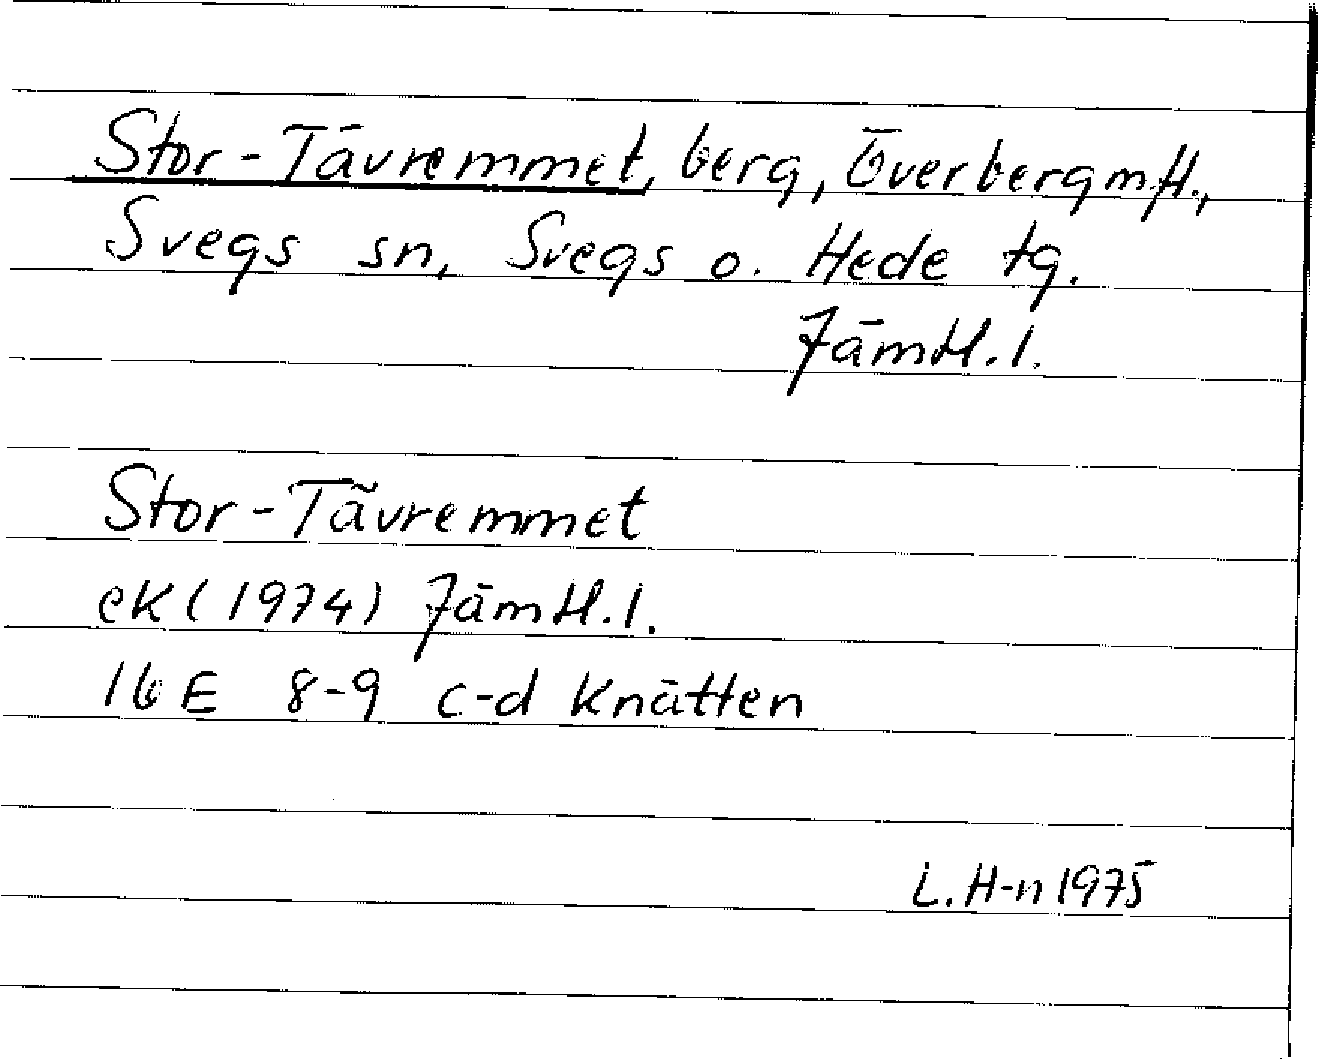 Stor-Tävremmet, berg, Överberg m.fl.,
Svegs sn, Svegs o. Hede tg.
Jämtl. l.
Stor-Tävremmet
ek (1974) Jämtl. l.
16 E 8-9 c-d Knätten
L. H-n 1975